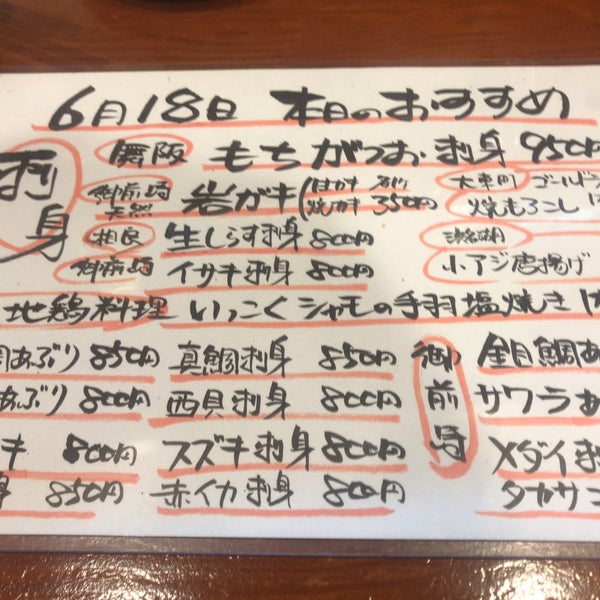 6月18日 本日のおすすめ
刺身
舞阪 もちがつお刺身 950円
御前崎 天然 岩ガキ 350円
大東町 ゴールド
焼もろこし
相良 生しらす刺身 800円
浜名湖
御前崎 イサキ刺身 800円
小アジ唐揚げ
地鶏料理 いっこくシャモの手羽塩焼き
あぶり 850円 真鯛刺身 850円
御前崎
金目鯛あ
あぶり 800円 西貝刺身 800円
サワラあ
キ 800円 スズキ刺身 800円
メダイ刺
850円 赤イカ刺身 800円
タカサゴ